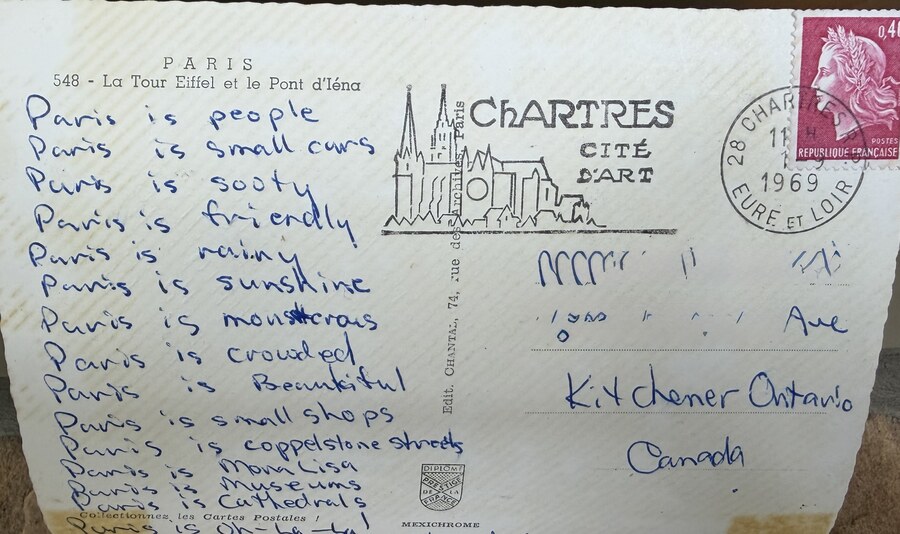 PARIS
548 - La Tour Eiffel et le Pont d'Iéna
Paris is people
Paris is small cars
Paris is sooty
Paris is friendly
Paris is rainy
Paris is sunshine
Paris is
Paris is crowded
Paris is Beautiful
Paris is small shops
Paris is coppelstone streets
Paris is Mona Lisa
Paris is Museums
Paris is Cathedrals
Collectionnez les Cartes Postales !
Paris is Oh-La-La!
Edit. CHANTAL, 74, rue des Archives, Paris
DIPLOME
PRESTIGE
DE LA
FRANCE
MEXICHROME
ChARTRES
CITÉ
D'ART
28 CHARTRES
11 H
1969
EURE ET LOIR
0,40
POSTES
REPUBLIQUE FRANÇAISE
Ave
Kitchener Ontario
Canada